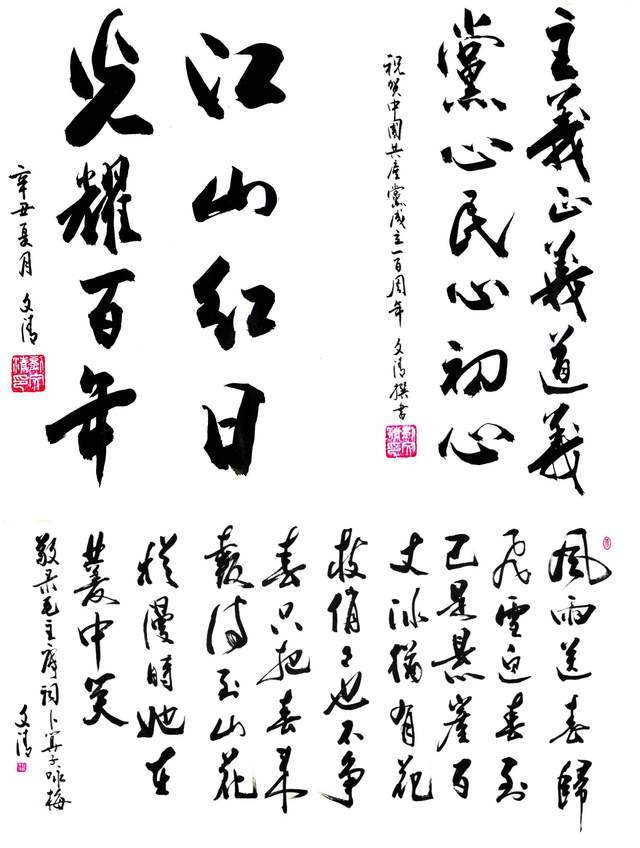 主義正義道義
黨心民心初心
祝贺中国共產黨成立一百周年 文清撰书
江山红日
光耀百年
辛丑夏月 文清
風雨送春歸
飛雪迎春到
已是悬崖百
丈冰猶有花
枝俏〻也不争
春只把春来
報待到山花
烂漫時她在
叢中笑
敬录毛主席词卜算子咏梅
文清